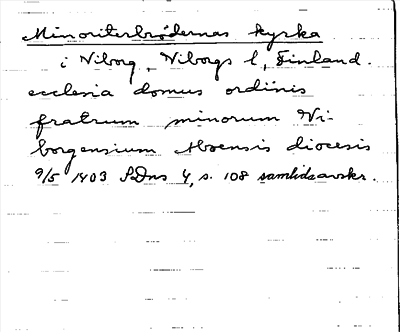 Minoriterbrödernas kyrka
i Viborg, Viborgs l, Finland.
ecclesia domus ordinis
fratrum minorum Vi-
borgensium Aboensis diocesis
9/5 1403 SDns 4, s. 108 samtidsavskr.